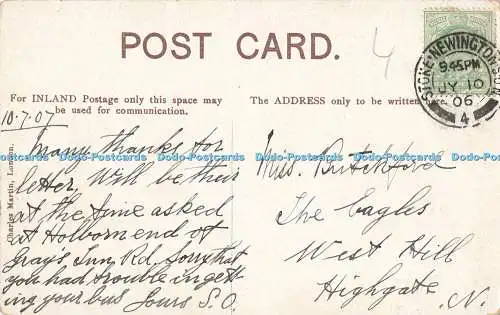 POST CARD.
4
STOKE NEWINGTON S.O.N.
9.45PM
JY 10
06
4
For INLAND Postage only this space may
be used for communication.
The ADDRESS only to be written here.
10.7.07
Many thanks for
letter. Will be their
at the time asked
at Holborn end of
Gray's Inn Rd. Sorry that
you had trouble in gett-
ing your bus Yours S.O.
Miss. Brickford
The Eagles
West Hill
Highgate
N.
Charles Martin, London.
Dodo-Postcards Dodo-Postcards Dodo-Postcards Dodo-Postcards Dodo-Postcards
Dodo-Postcards Dodo-Postcards Dodo-Postcards Dodo-Postcards Dodo-Postcards